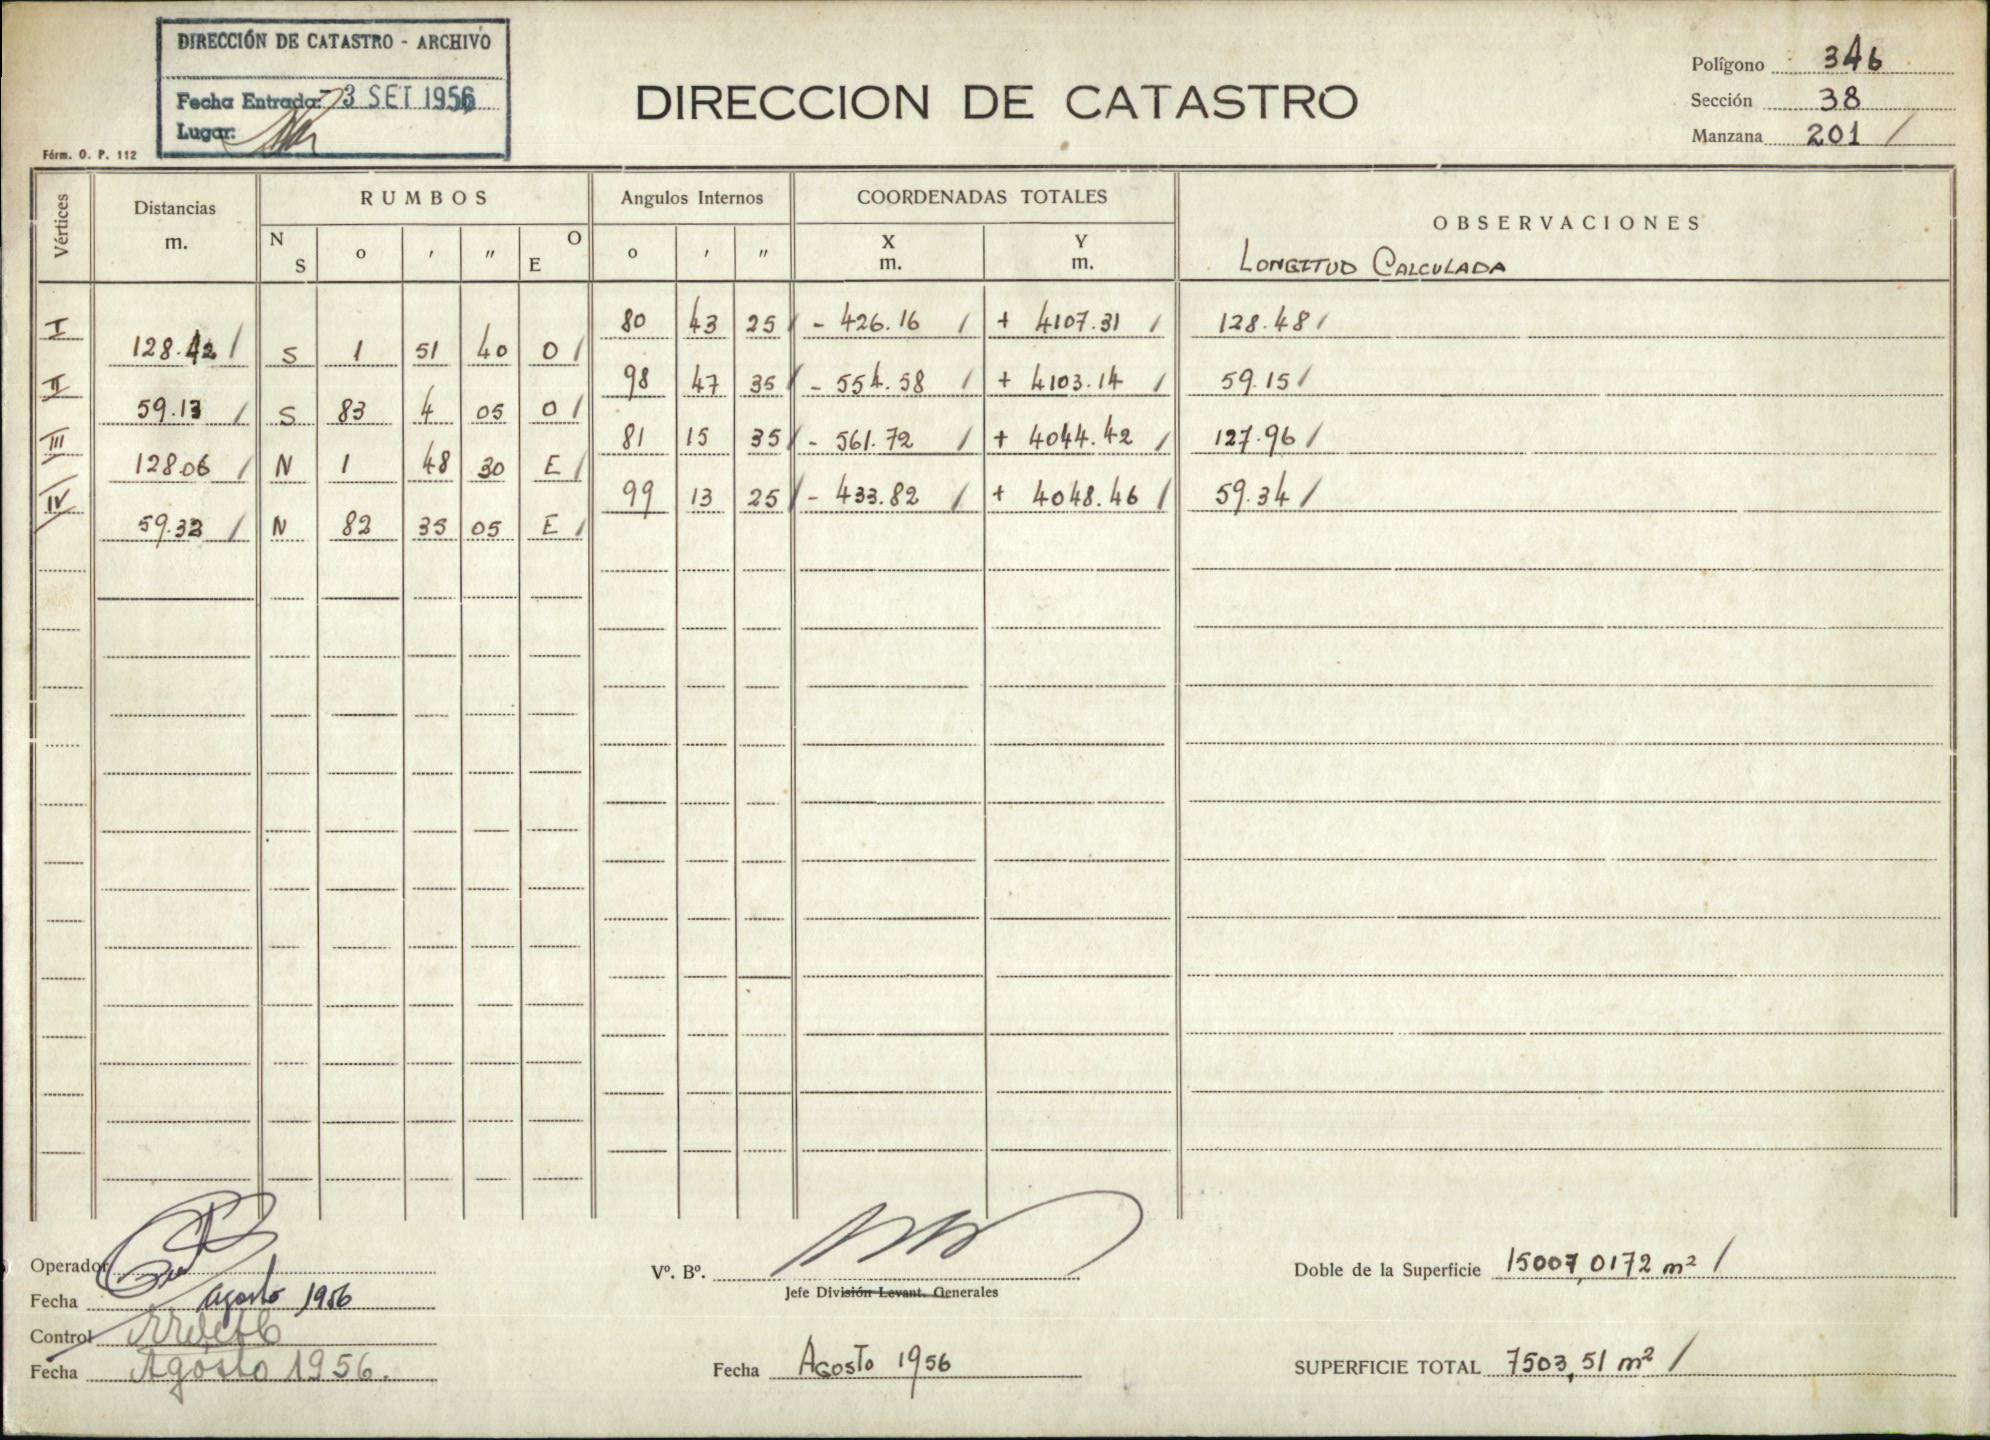 DIRECCIÓN DE CATASTRO - ARCHIVO
Fecha Entrada: -3 SET 1956
Lugar:
Fórm. O. P. 112
DIRECCION DE CATASTRO
Polígono 346
Sección 38
Manzana 201 /
Vértices
Distancias
m.
RUMBOS
N S o ' " O E
Angulos Internos
o ' "
COORDENADAS TOTALES
X
m.
Y
m.
OBSERVACIONES
LONGITUD CALCULADA
I 80 43 25 / - 426.16 / + 4107.31 / 128.48 /
128.42 / S 1 51 40 O /
II 98 47 35 / - 554.58 / + 4103.14 / 59.15 /
59.13 / S 83 4 05 O /
III 81 15 35 / - 561.72 / + 4044.42 / 127.96 /
128.06 / N 1 48 30 E /
IV 99 13 25 / - 433.82 / + 4048.46 / 59.34 /
59.33 / N 82 35 05 E /
Operador
Fecha agosto 1956
Control
Fecha Agosto 1956.
Vº. Bº.
Jefe División Levant. Generales
Fecha AGOSTO 1956
Doble de la Superficie 15007,0172 m² /
SUPERFICIE TOTAL 7503,51 m² /